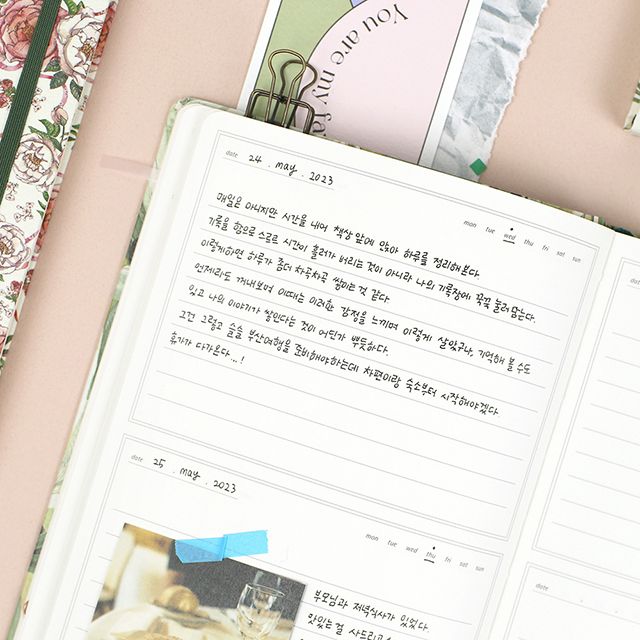 You are my fa
date 24 . may . 2023
mon tue wed thu fri sat sun
매일은 아니지만 시간을 내어 책상 앞에 앉아 하루를 정리해본다.
기록을 함으로 스르르 시간이 흘러가 버리는 것이 아니라 나의 기록장에 꾹꾹 눌러 담는다.
이렇게하면 하루가 좀더 차곡차곡 쌓이는 것 같다.
언제라도 꺼내보며 이때는 이러한 감정을 느끼며 이렇게 살았구나, 기억해 볼 수도
있고 나의 이야기가 쌓인다는 것이 어딘가 뿌듯하다.
그건 그렇고 슬슬 부산여행을 준비해야하는데 차편이랑 숙소부터 시작해야겠다.
휴가가 다가온다...!
date
date 25 . may . 2023
mon tue wed thu fri sat sun
부모님과 저녁식사가 있었다.
맛있는걸 사드리고
date